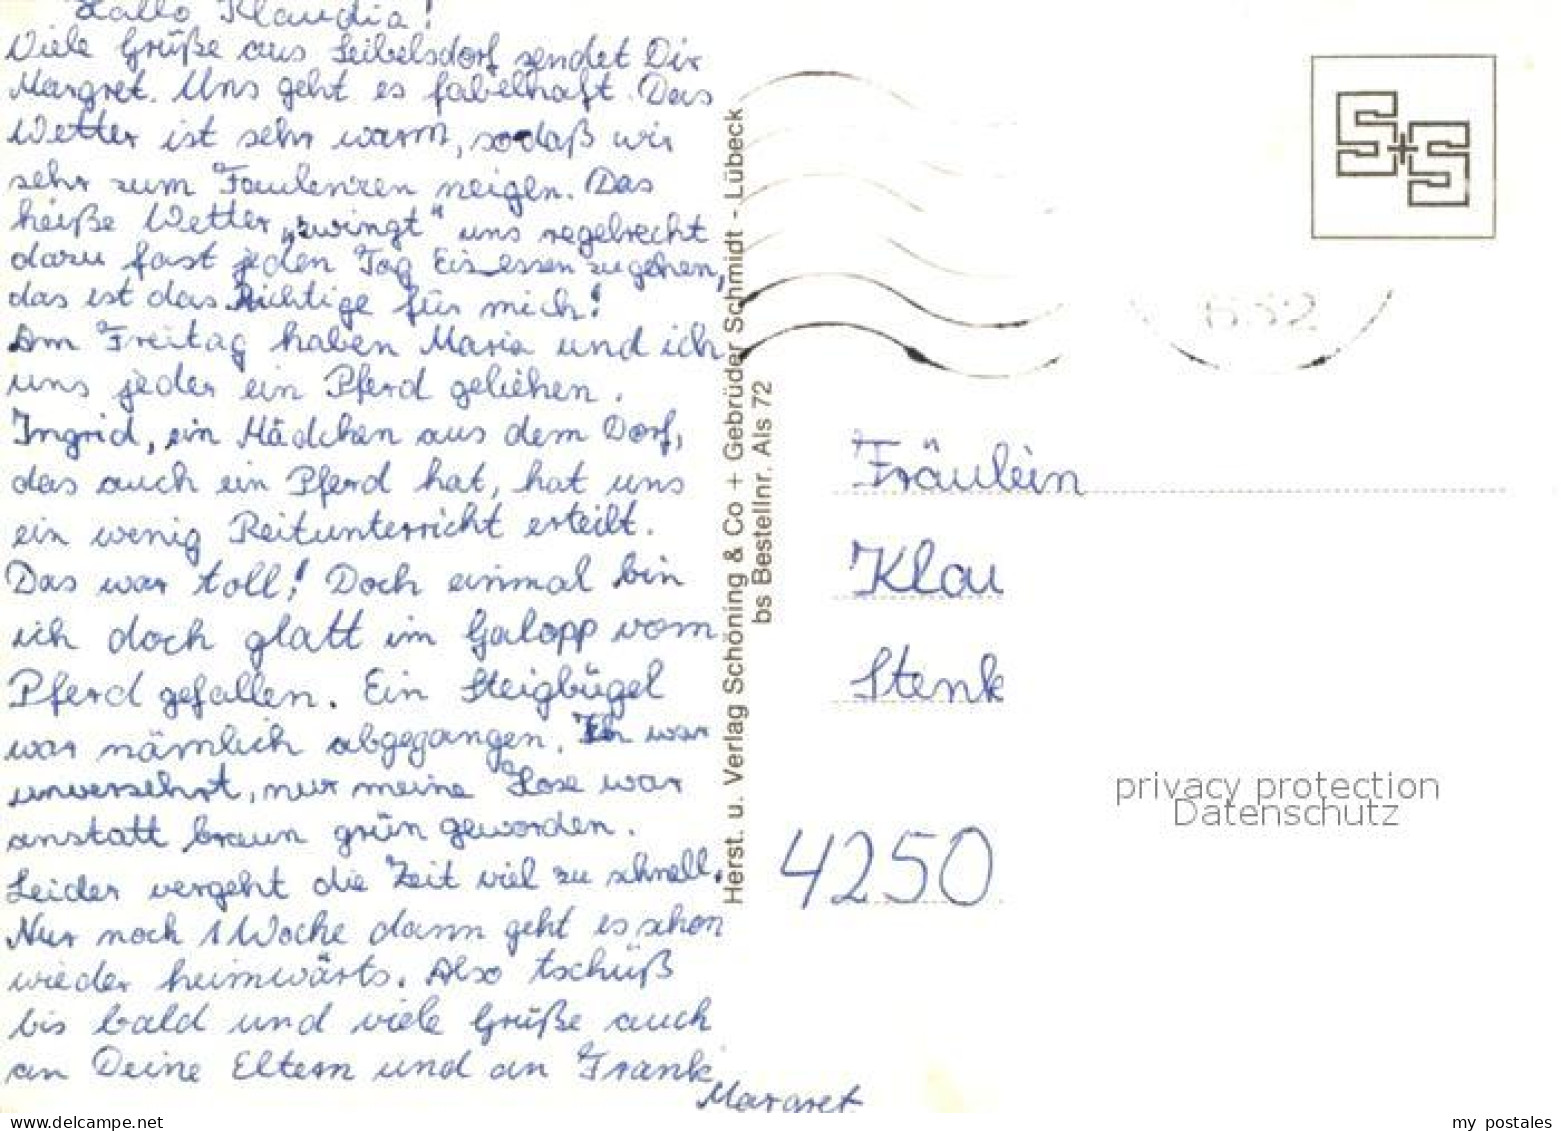 Hallo Klaudia!
Viele Grüße aus Leibelsdorf sendet Dir
Margret. Uns geht es fabelhaft. Das
Wetter ist sehr warm, sodaß wir
sehr zum Faulenzen neigen. Das
heiße Wetter „zwingt“ uns regelrecht
dazu fast jeden Tag Eis essen zugehen,
das ist das Richtige für mich!
Am Freitag haben Maria und ich
uns jeder ein Pferd geliehen.
Ingrid, ein Mädchen aus dem Dorf,
das auch ein Pferd hat, hat uns
ein wenig Reitunterricht erteilt.
Das war toll! Doch einmal bin
ich doch glatt im Galopp vom
Pferd gefallen. Ein Steigbügel
war nämlich abgegangen. Ich war
unversehrt, nur meine Hose war
anstatt braun grün geworden.
Leider vergeht die Zeit viel zu schnell.
Nur noch 1 Woche dann geht es schon
wieder heimwärts. Also tschüß
bis bald und viele Grüße auch
an Deine Eltern und an Frank
Margret
Herst. u. Verlag Schöning & Co + Gebrüder Schmidt - Lübeck
bs Bestellnr. Als 72
S+S
632
Fräulein
Klau
Stenk
4250
privacy protection
Datenschutz
www.delcampe.net
my_postales